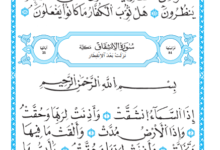 يَنظُرُونَ هَلْ ثُوِّبَ الْكُفَّارُ مَا كَانُوا يَفْعَلُونَ
سُورَةُ الِانْشِقَاقِ مَكِّيَّة
نزلت بعد الانفطار
بِسْمِ اللَّهِ الرَّحْمَٰنِ الرَّحِيمِ
إِذَا السَّمَاءُ انشَقَّتْ وَأَذِنَتْ لِرَبِّهَا وَحُقَّتْ
وَإِذَا الْأَرْضُ مُدَّتْ وَأَلْقَتْ مَا فِيهَا